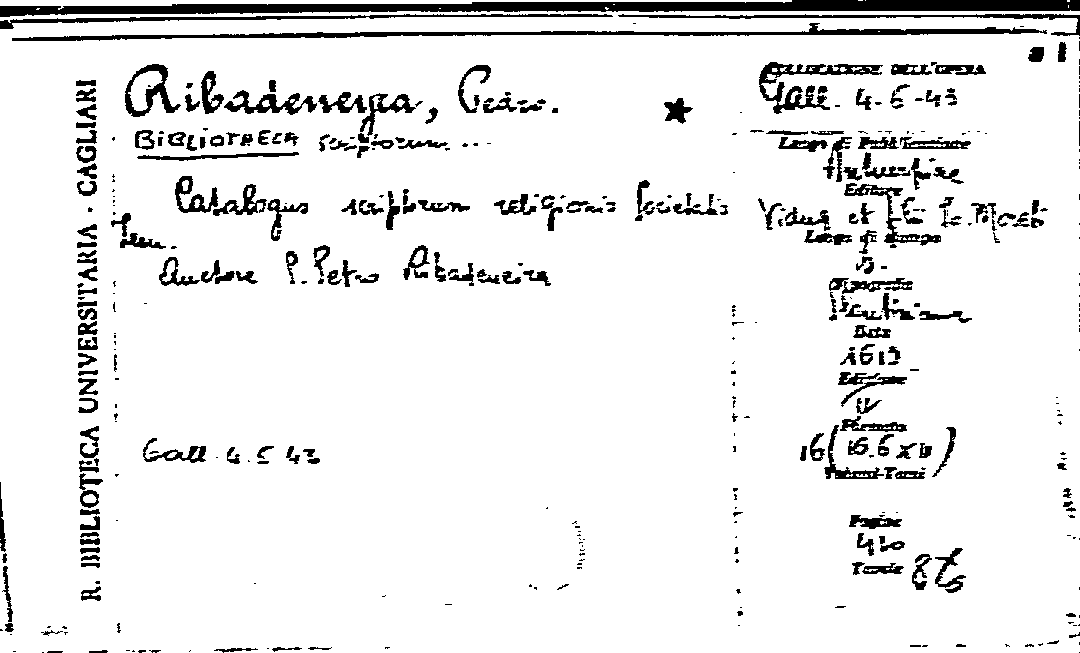 R. BIBLIOTECA UNIVERSITARIA - CAGLIARI
Ribadeneyra, Pedro.
BIBLIOTHECA scriptorum ...
Catalogus scriptorum religionis Societatis
Iesu.
Auctore P. Petro Ribadeneira
Gall. 4. 5. 43
COLLOCAZIONE DELL'OPERA
Gall. 4-5-43
Luogo di Pubblicazione
Antuerpiae
Editore
Vidua et
Luogo di stampa
Tipografia
Plantiniana
Data
1613
Edizione
II
Formato
Volumi-Tomi
Pagine
Tavole